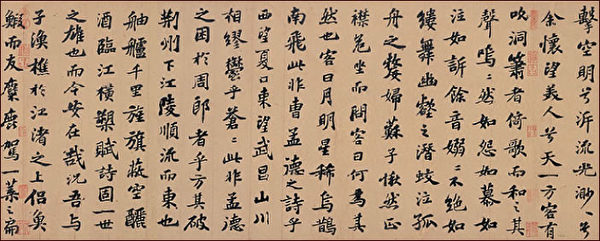 擊空明兮泝流光渺〻兮
余懷望美人兮天一方客有
吹洞簫者倚歌而和之其
聲嗚〻然如怨如慕如
泣如訴餘音嫋〻不絕如
縷舞幽壑之潛蛟泣孤
舟之嫠婦蘇子愀然正
襟危坐而問客曰何為其
然也客曰月明星稀烏鵲
南飛此非曹孟德之詩乎
西望夏口東望武昌山川
相繆鬱乎蒼〻此非孟德
之困於周郎者乎方其破
荊州下江陵順流而東也
舳艫千里旌旗蔽空釃
酒臨江橫槊賦詩固一世
之雄也而今安在哉況吾與
子漁樵於江渚之上侶魚
鰕而友麋鹿駕一葉之扁